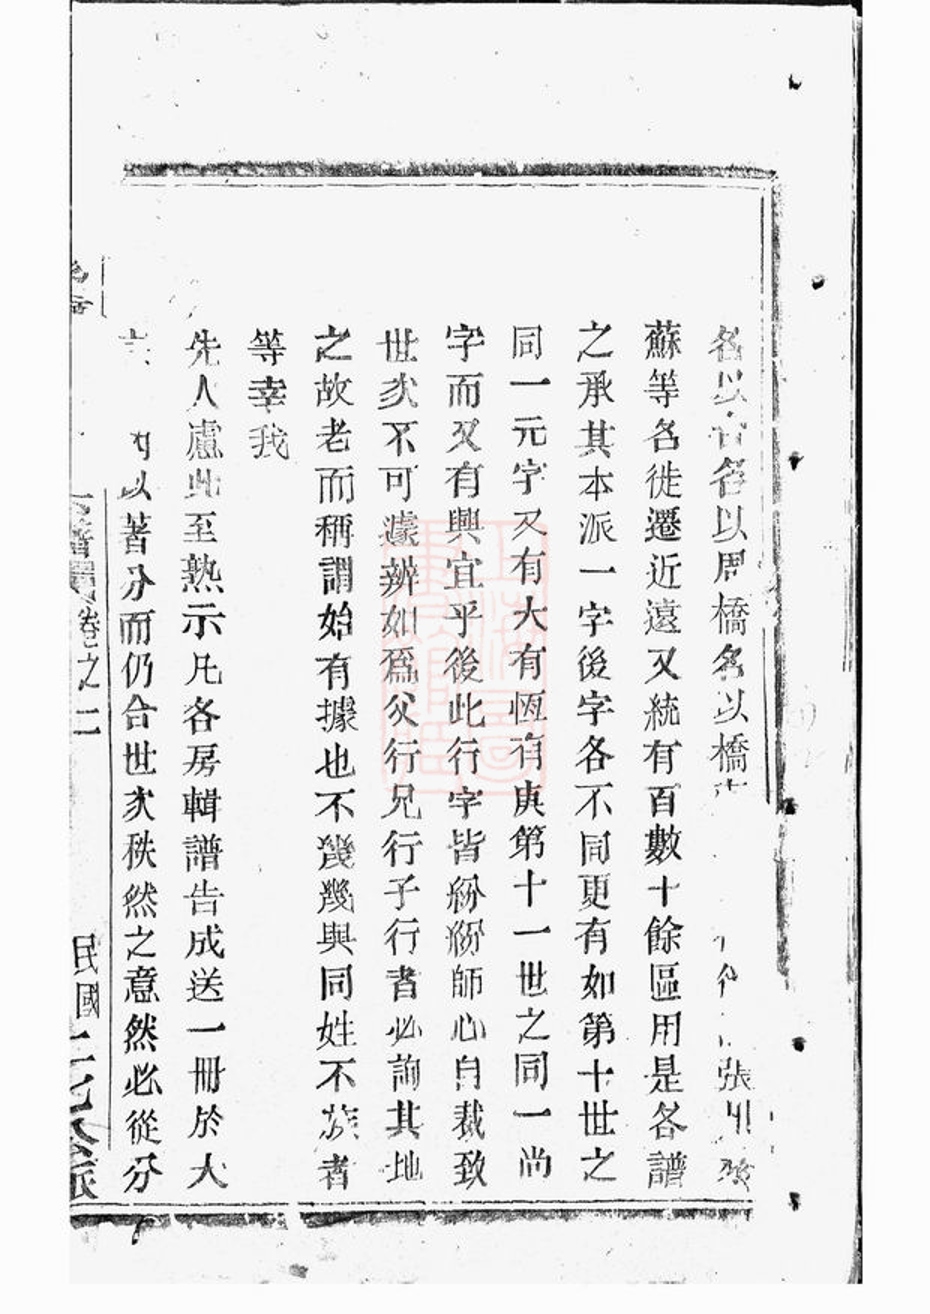 各以 名以周橋名以橋 張
蘇等名徙遷近遠又統有百數十餘區用是各譜
之承其本派一字後字各不同更有如第十世之
同一元字又有大有恆有庚第十一世之同一尚
字而又有興宜乎後此行字皆紛紛師心自裁致
世次不可據辨如爲父行兄行子行者必詢其地
之故老而稱謂始有據也不幾幾與同姓不族者
等幸我
先人慮此至熟示凡各房輯譜告成送一冊於大
以著分而仍合世次秩然之意然必從分
卷之二
民國